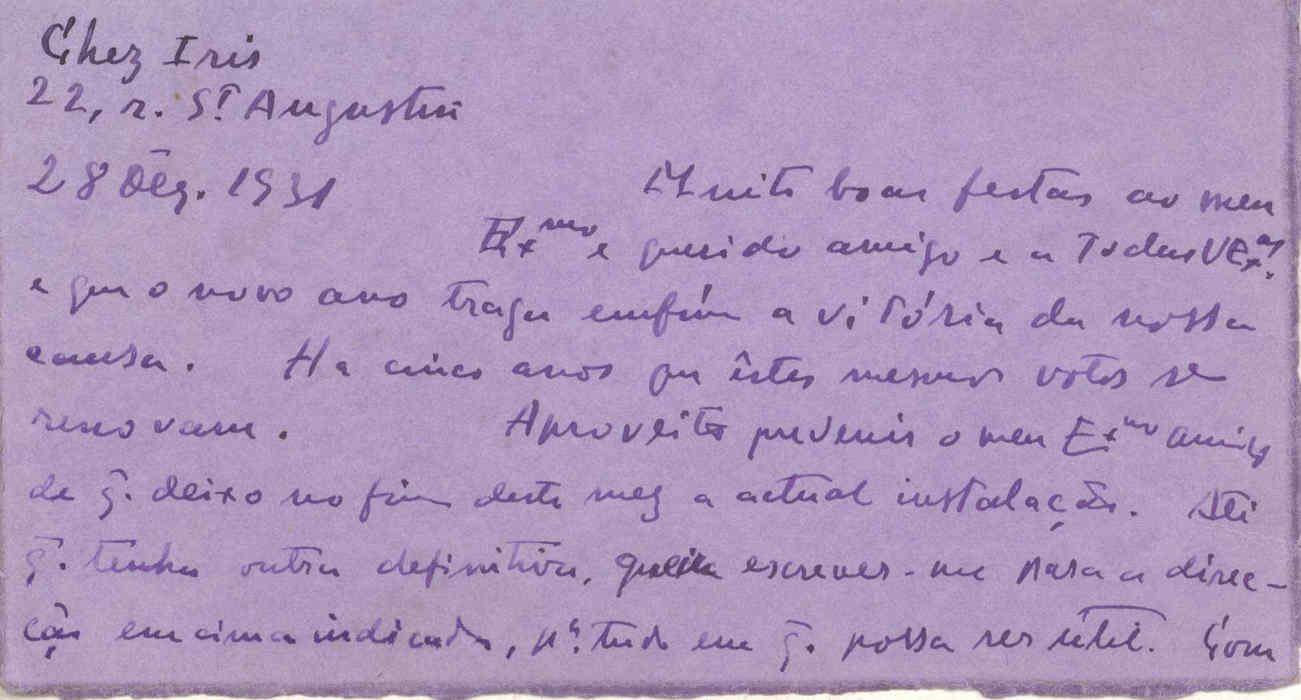 Chez Iris
22, r. St Augustin
28 Dez. 1931
Muito boas festas ao meu
Exmo e querido amigo e a todas VExas.
e que o novo ano traga enfim a vitória da nossa
causa. Ha cinco anos que êstes mesmos votos se
renovam. Aproveito prevenir o meu Exmo amigo
de q̃. deixo no fim deste mez a actual instalação. Até
q̃. tenha outra definitiva, queira escrever-me para a direc-
ção em cima indicada, pa. tudo em q̃. possa ser útil. Com